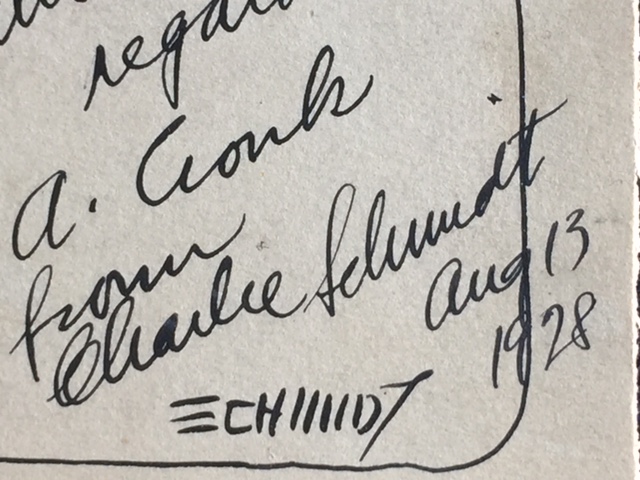 regard
A. Cronk
from
Charlie Schmidt
Aug 13
1928
SCHMIDT